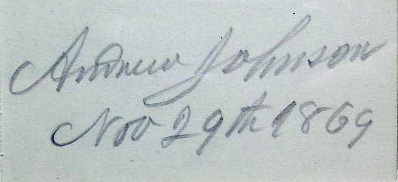 Andrew Johnson
Nov 29th 1869